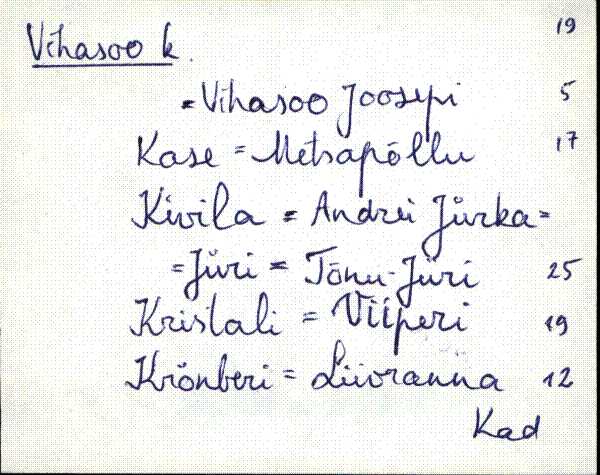 Vihasoo k. 19
= Vihasoo Joosepi 5
Kase = Metsapõllu 17
Kivila = Andrei Jürka =
= Jüri = Tõnu-Jüri 25
Kristali = Viiperi 19
Krönberi = Liivranna 12
Kad